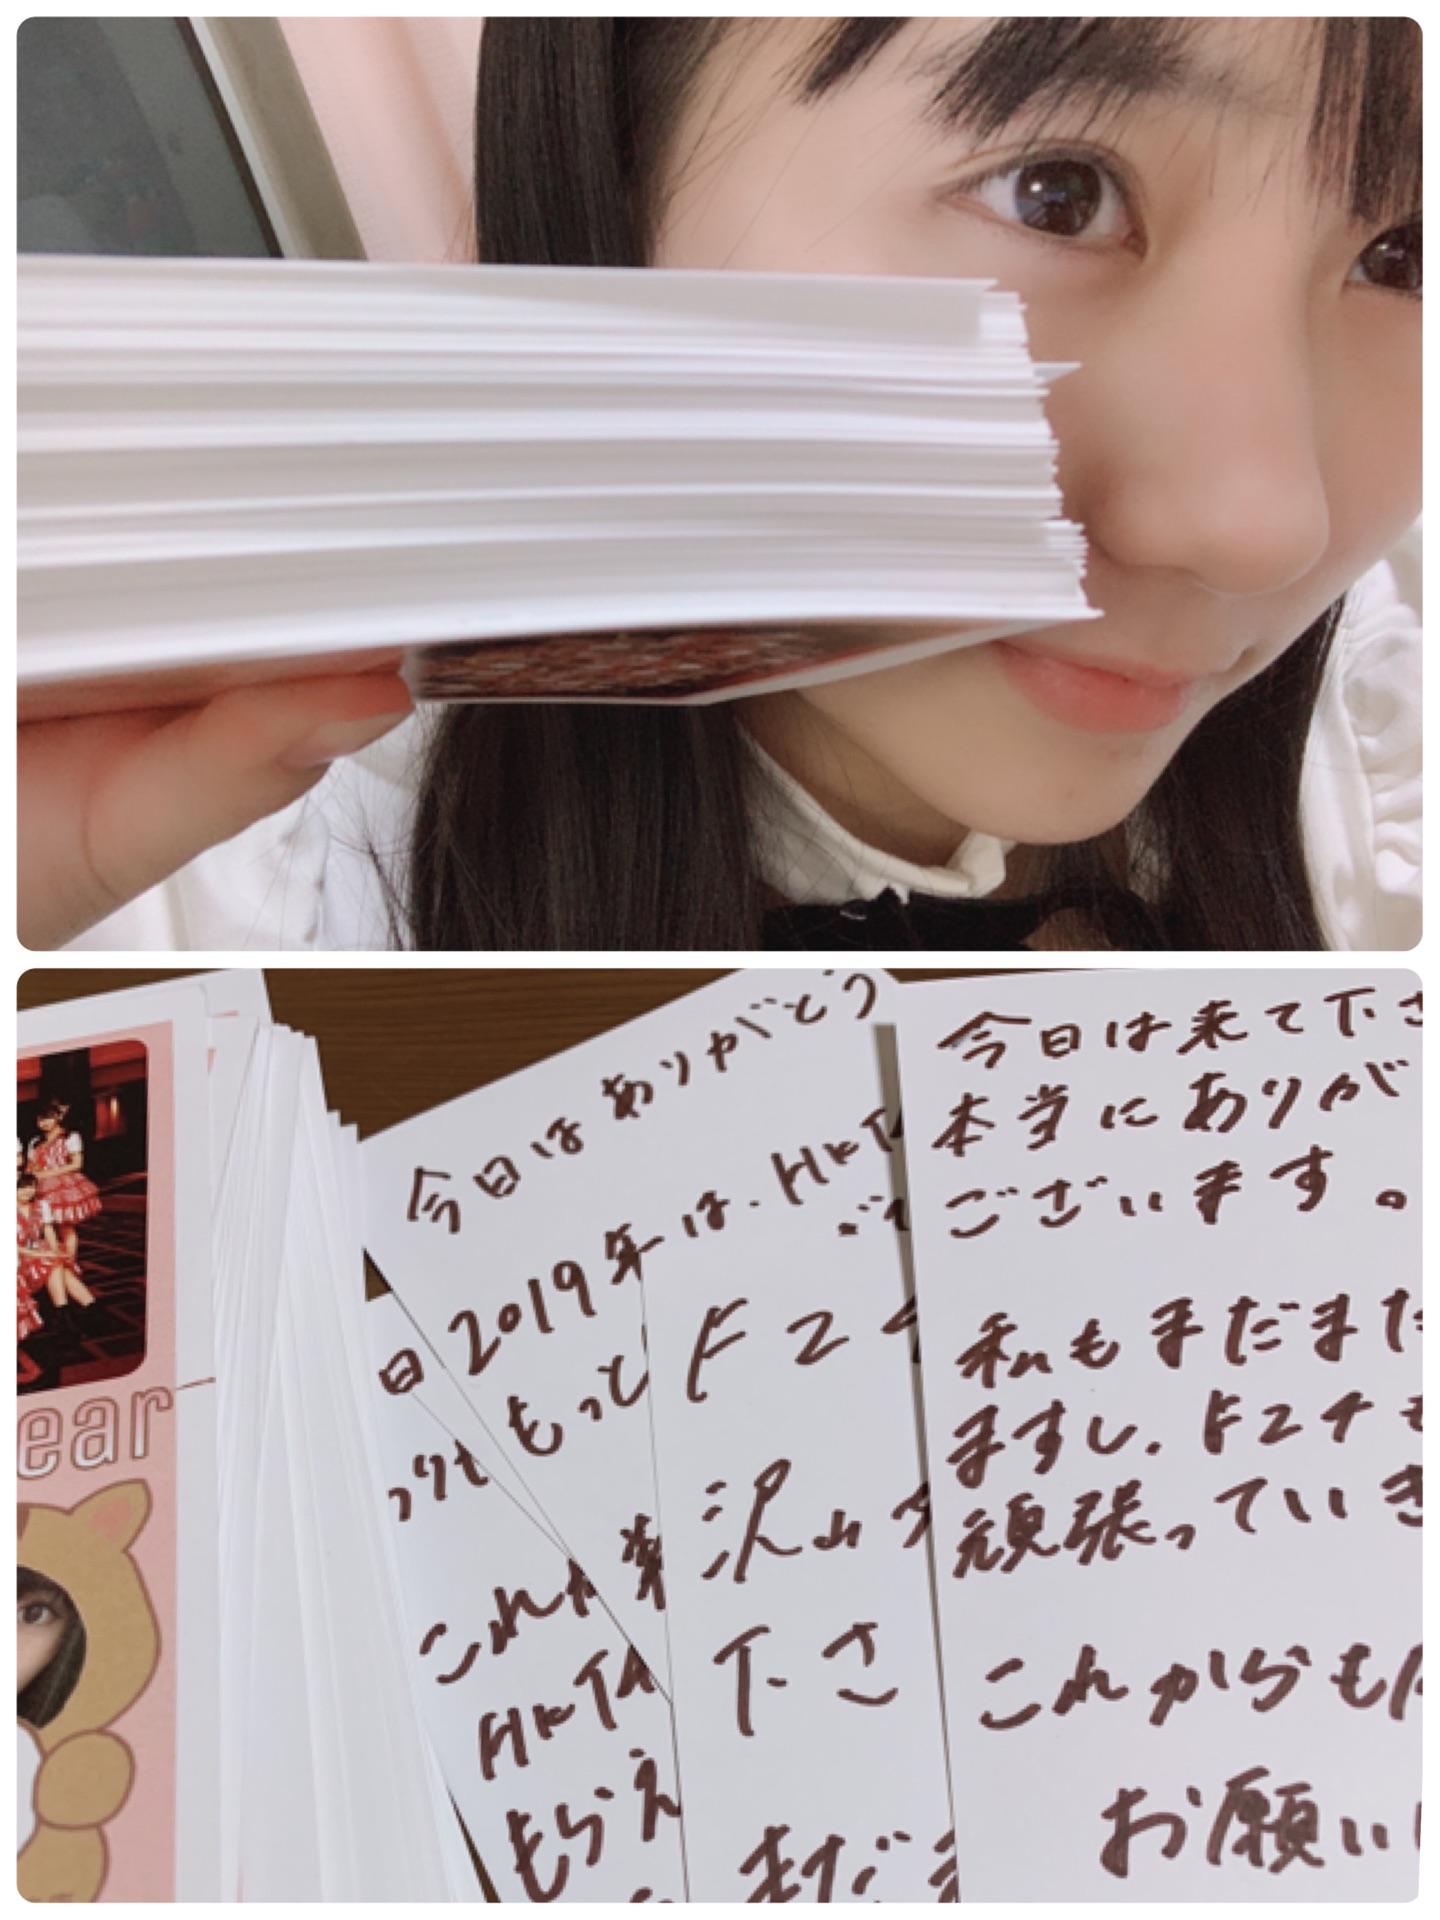 ear
今日はありがとう
2019年は、HKT
もっと
日
これか
HKT4
もらえ
ドコ
沢山
下さ
まだ
今日は来て下さ
本当にありが
ございます。
私もまだまだ
ますし、ドコチも
頑張っていき
これからも
お願い